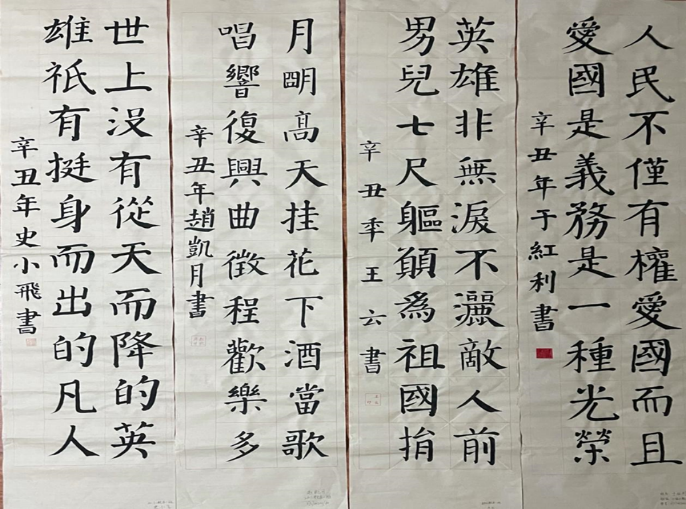 人民不僅有權愛國而且
愛國是義務是一種光榮
辛丑年于紅利書
英雄非無淚不灑敵人前
男兒七尺軀願為祖國捐
辛丑年王云書
月明高天挂花下酒當歌
唱響復興曲徵程歡樂多
辛丑年趙凱月書
世上沒有從天而降的英
雄祇有挺身而出的凡人
辛丑年史小飛書